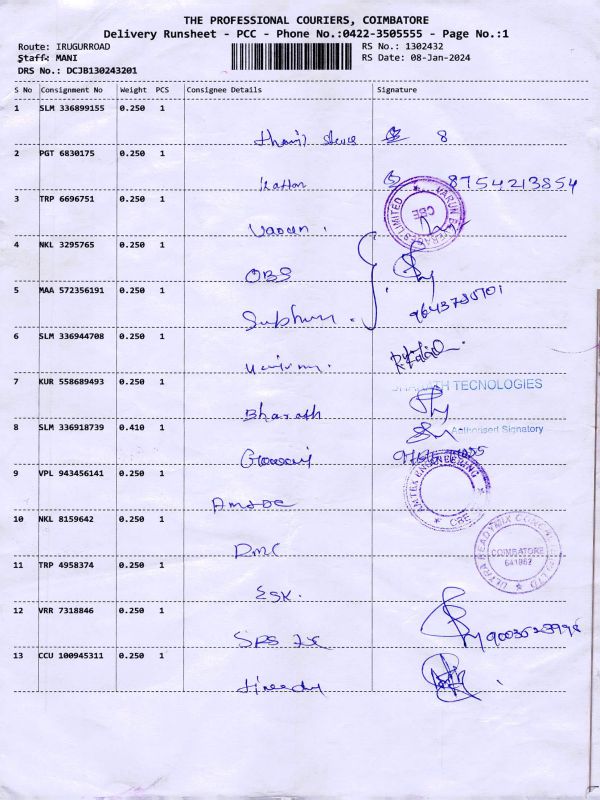 THE PROFESSIONAL COURIERS, COIMBATORE
Delivery Runsheet - PCC - Phone No.:0422-3505555 - Page No.:1
Route: IRUGURROAD RS No.: 1302432
Staff: MANI RS Date: 08-Jan-2024
DRS No.: DCJB130243201
S No Consignment No Weight PCS Consignee Details Signature
1 SLM 336899155 0.250 1
8
2 PGT 6830175 0.250 1
8754213854
3 TRP 6696751 0.250 1
VARUN BEVERAGES LIMITED CBE
Varun.
4 NKL 3295765 0.250 1
OBS
5 MAA 572356191 0.250 1
6 SLM 336944708 0.250 1
7 KUR 558689493 0.250 1
BHARATH TECNOLOGIES
Bharath
8 SLM 336918739 0.410 1
Authorised Signatory
9 VPL 943456141 0.250 1
AMTEK ENGINEERING CBE
10 NKL 8159642 0.250 1
ULTRA READYMIX CONCRETE (P) LTD COIMBATORE 641062
RMC
11 TRP 4958374 0.250 1
ESK.
12 VRR 7318846 0.250 1
SPS
13 CCU 100945311 0.250 1